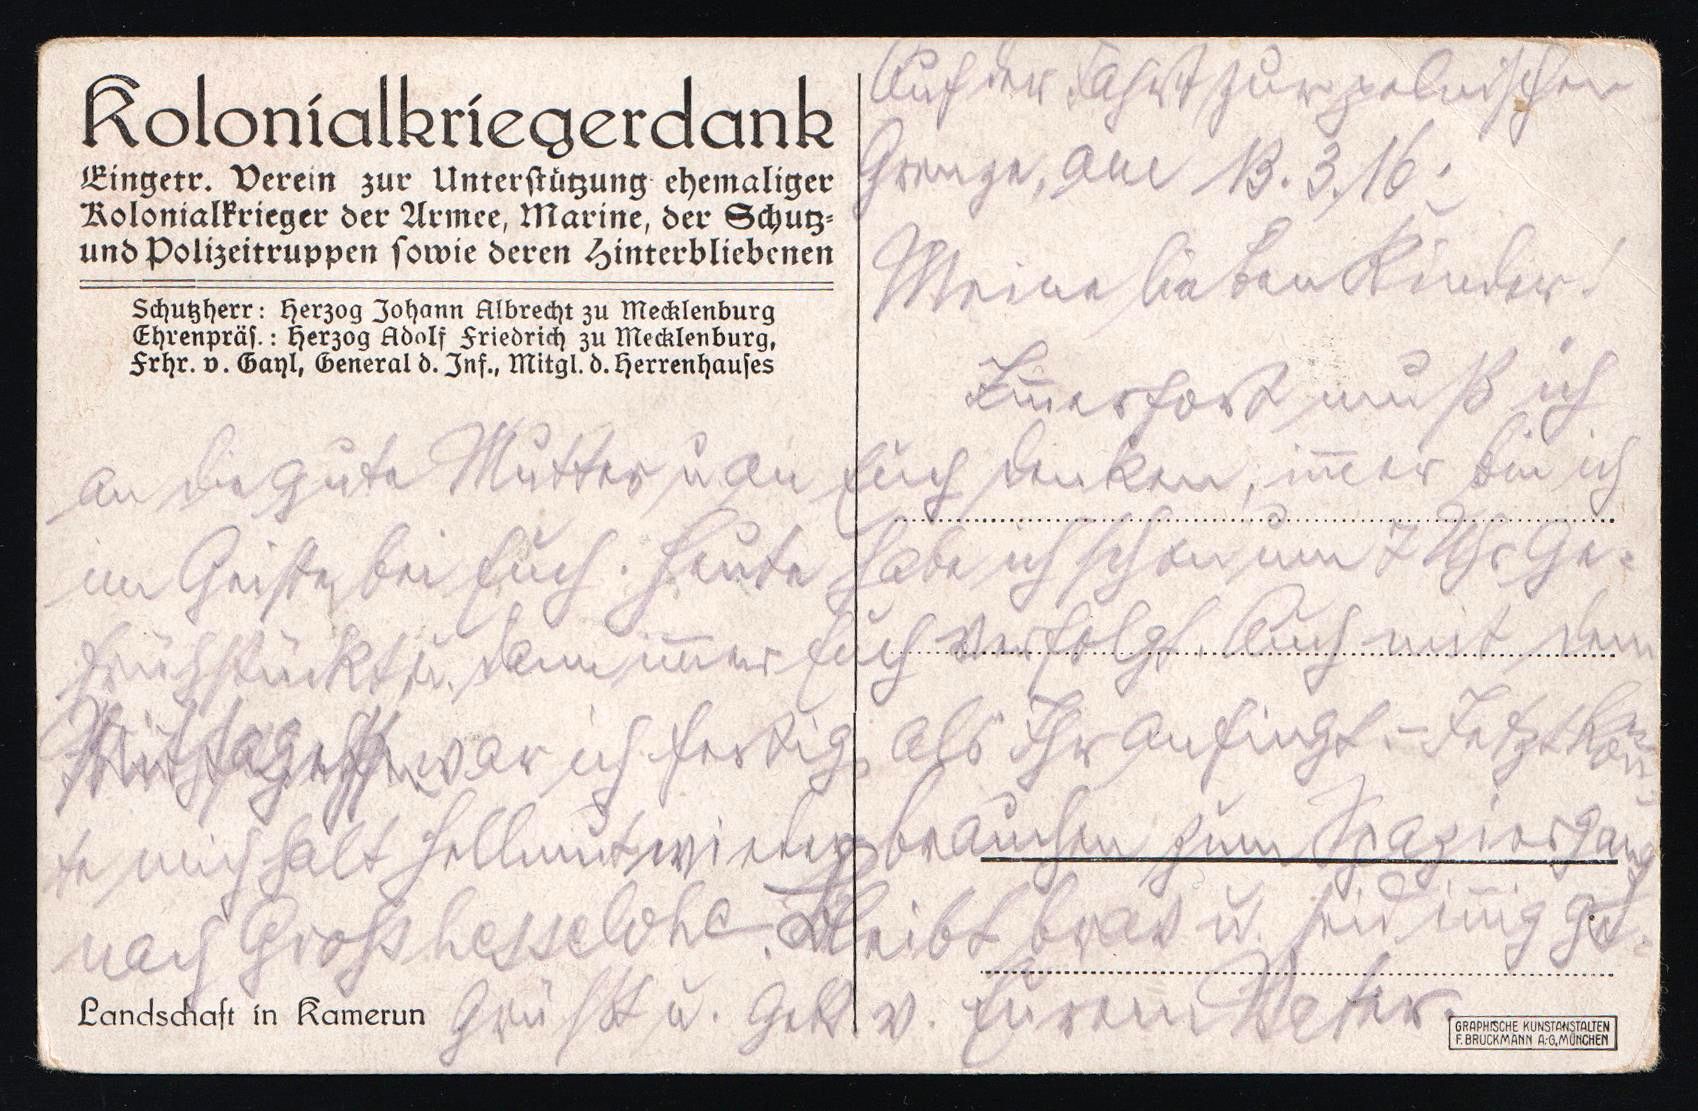 Kolonialkriegerdank
Eingetr. Verein zur Unterstützung ehemaliger
Kolonialkrieger der Armee, Marine, der Schutz-
und Polizeitruppen sowie deren Hinterbliebenen
Schutzherr: Herzog Johann Albrecht zu Mecklenburg
Ehrenpräs.: Herzog Adolf Friedrich zu Mecklenburg,
Frhr. v. Gayl, General d. Inf., Mitgl. d. Herrenhauses
Auf der Fahrt zur polnischen
Grenze, am 13.3.16.
Meine lieben Kinder!
Im̄erfort muß ich
an die gute Mutter u. an Euch denken, im̄er bin ich
im Geiste bei Euch. Heute habe ich schon um 7 Uhr ge-
frühstückt u. dann im̄er Euch verfolgt. Auch mit dem
Mittagessen war ich fertig, als Ihr anfingt. – Jetzt kön̄-
te mich halt Hellmut wieder brauchen zum Spaziergang
nach Großhesselohe. Bleibt brav u. seid in̄ig ge-
grüßt u. v. Eurem Vater.
Landschaft in Kamerun
GRAPHISCHE KUNSTANSTALTEN
F. BRUCKMANN A.-G., MÜNCHEN